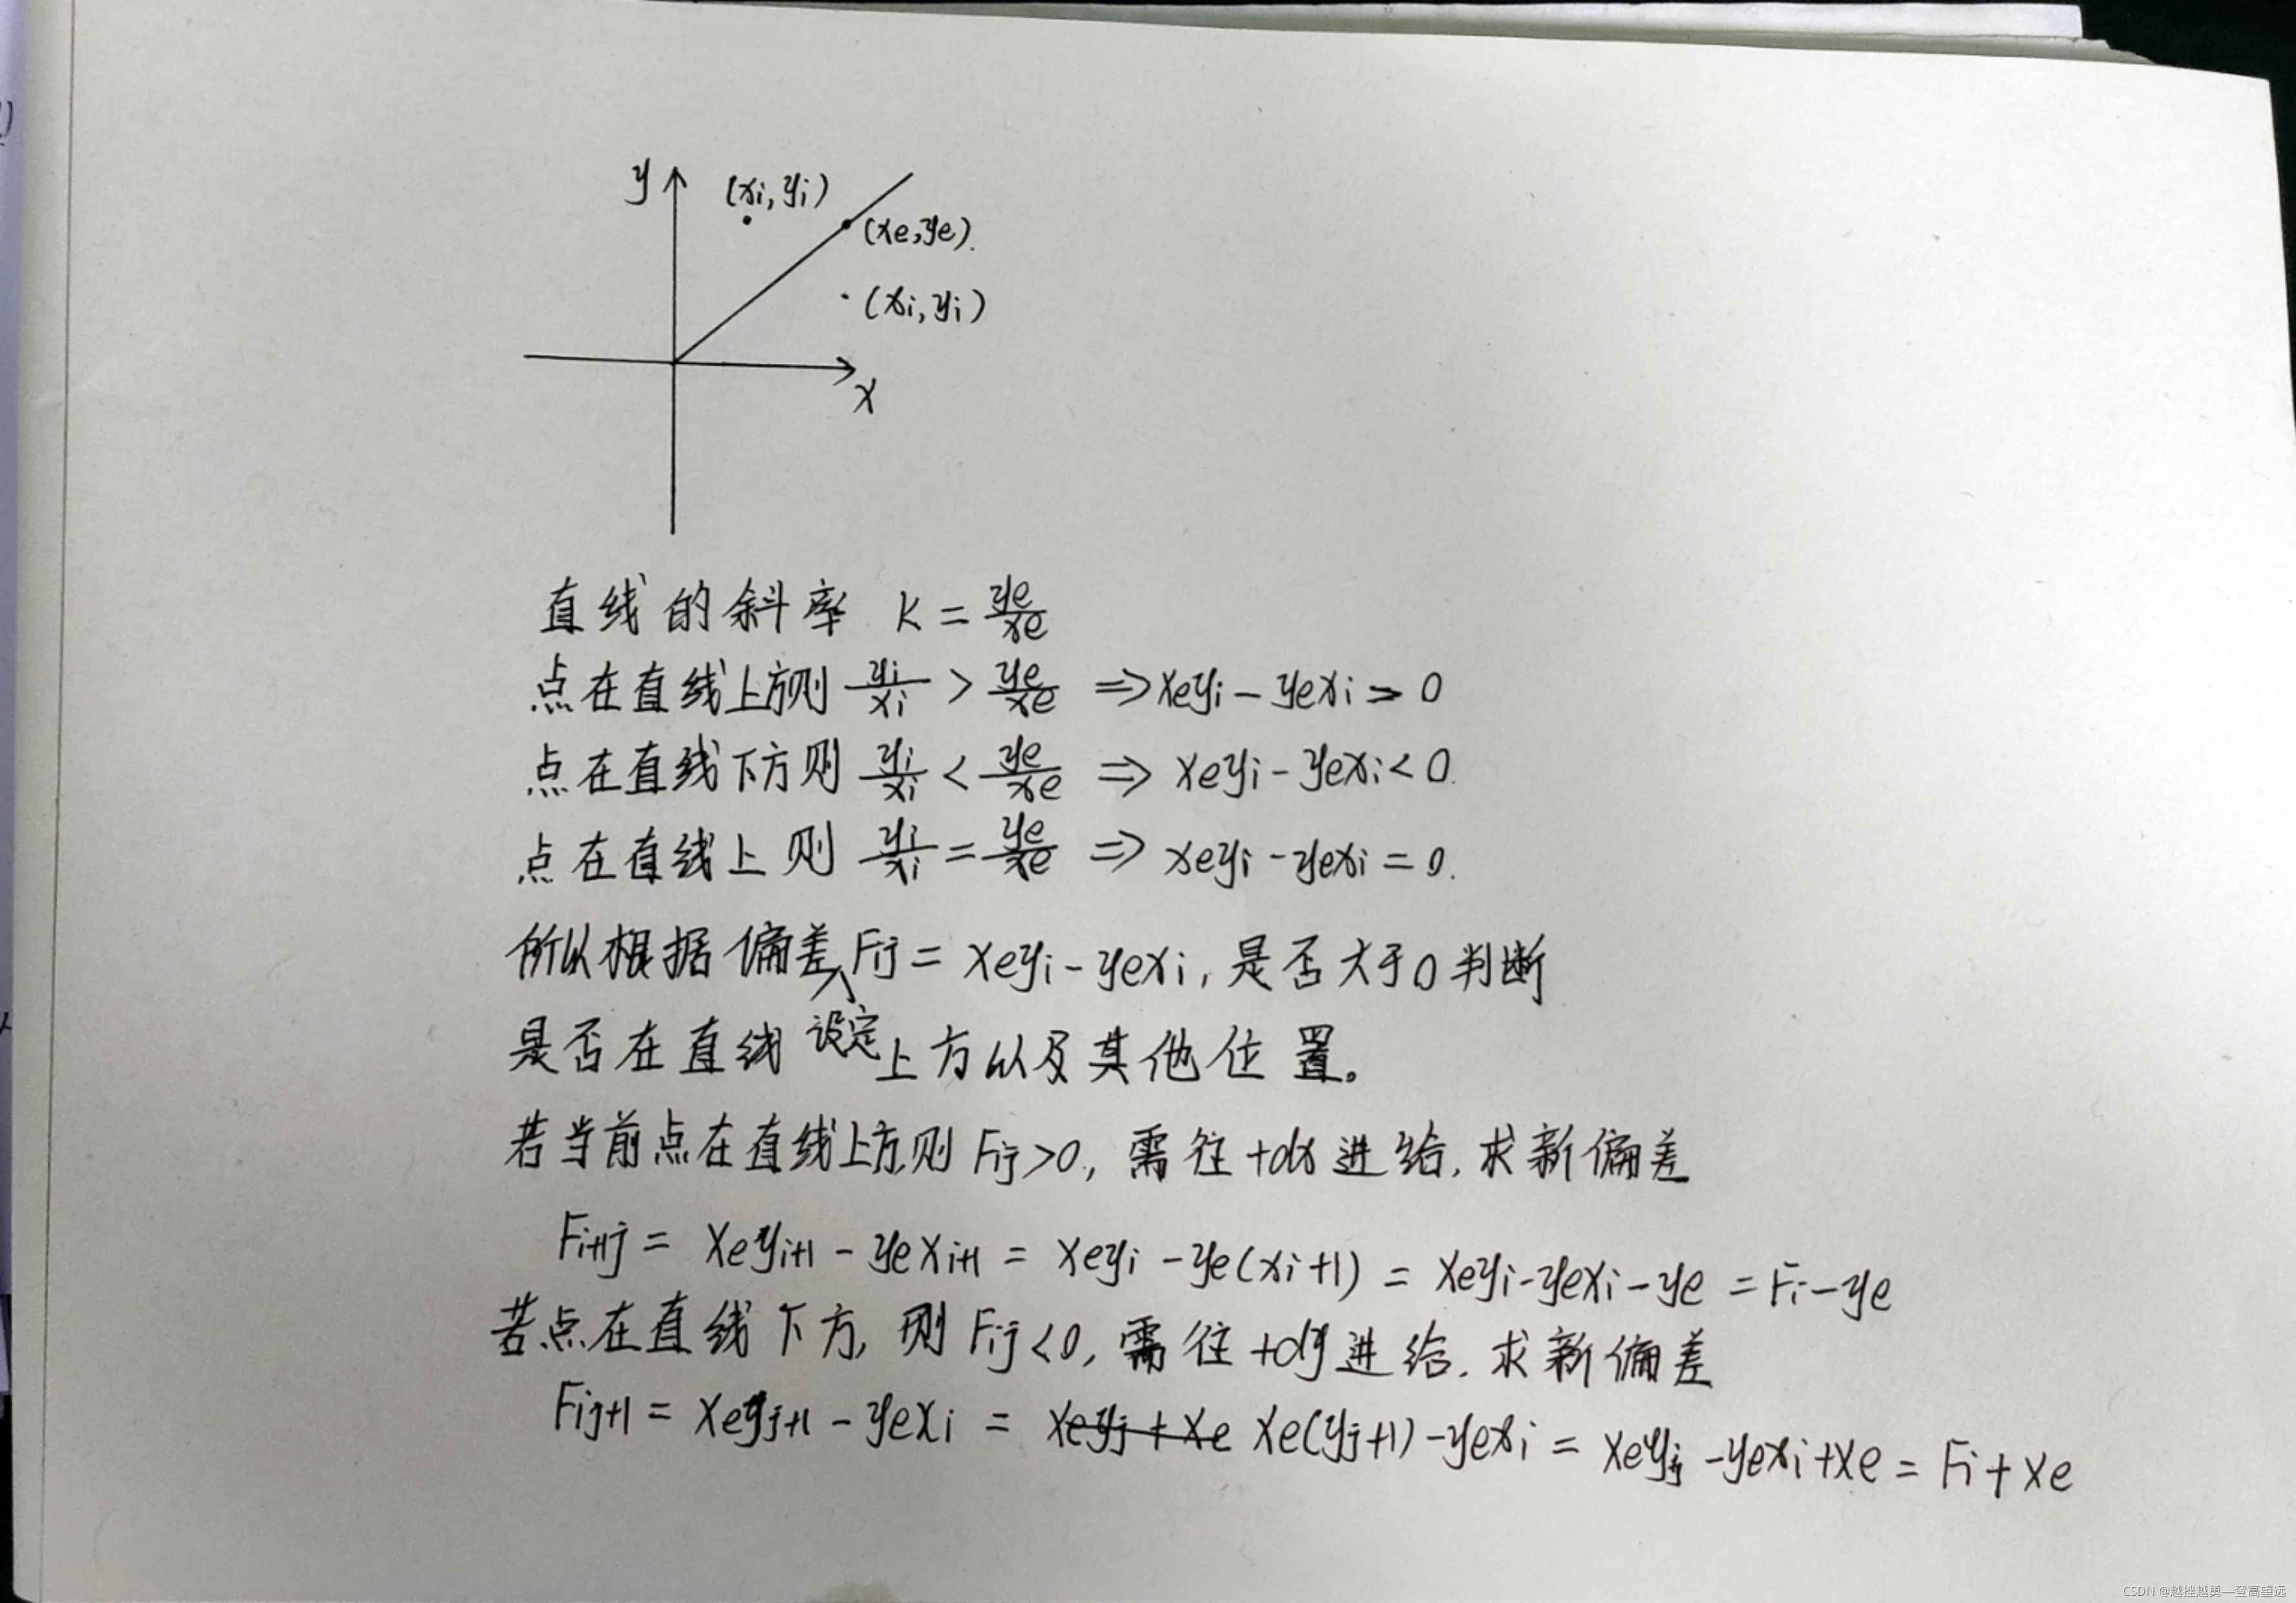 y
(xi, yi)
(xe, ye).
(xi, yi)
x
直线的斜率 K = ye/xe
点在直线上方则 yi/xi > ye/xe ⇒ xeyi - yexi > 0
点在直线下方则 yi/xi < ye/xe ⇒ xeyi - yexi < 0.
点在直线上则 yi/xi = ye/xe ⇒ xeyi - yexi = 0.
所以根据偏差设定Fij = xeyi - yexi, 是否大于0判断
是否在直线上方以及其他位置。
若当前点在直线上方,则 Fij>0, 需往+dx进给. 求新偏差
Fi+1j = xeyi+1 - yexi+1 = xeyi - ye(xi+1) = xeyi - yexi - ye = Fi - ye
若点在直线下方, 则 Fij<0, 需往+dy进给. 求新偏差
Fij+1 = xeyj+1 - yexi = xeyj + xe xe(yj+1) - yexi = xeyj - yexi + xe = Fi + xe
CSDN @越挫越勇—登高望远